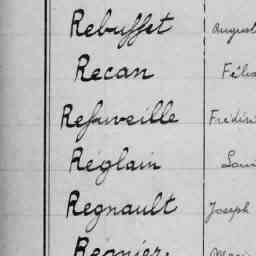 Rebuffet August
Recan Féli
Refuveille Frédéri
Réglain Loui
Regnault Joseph
Régnier